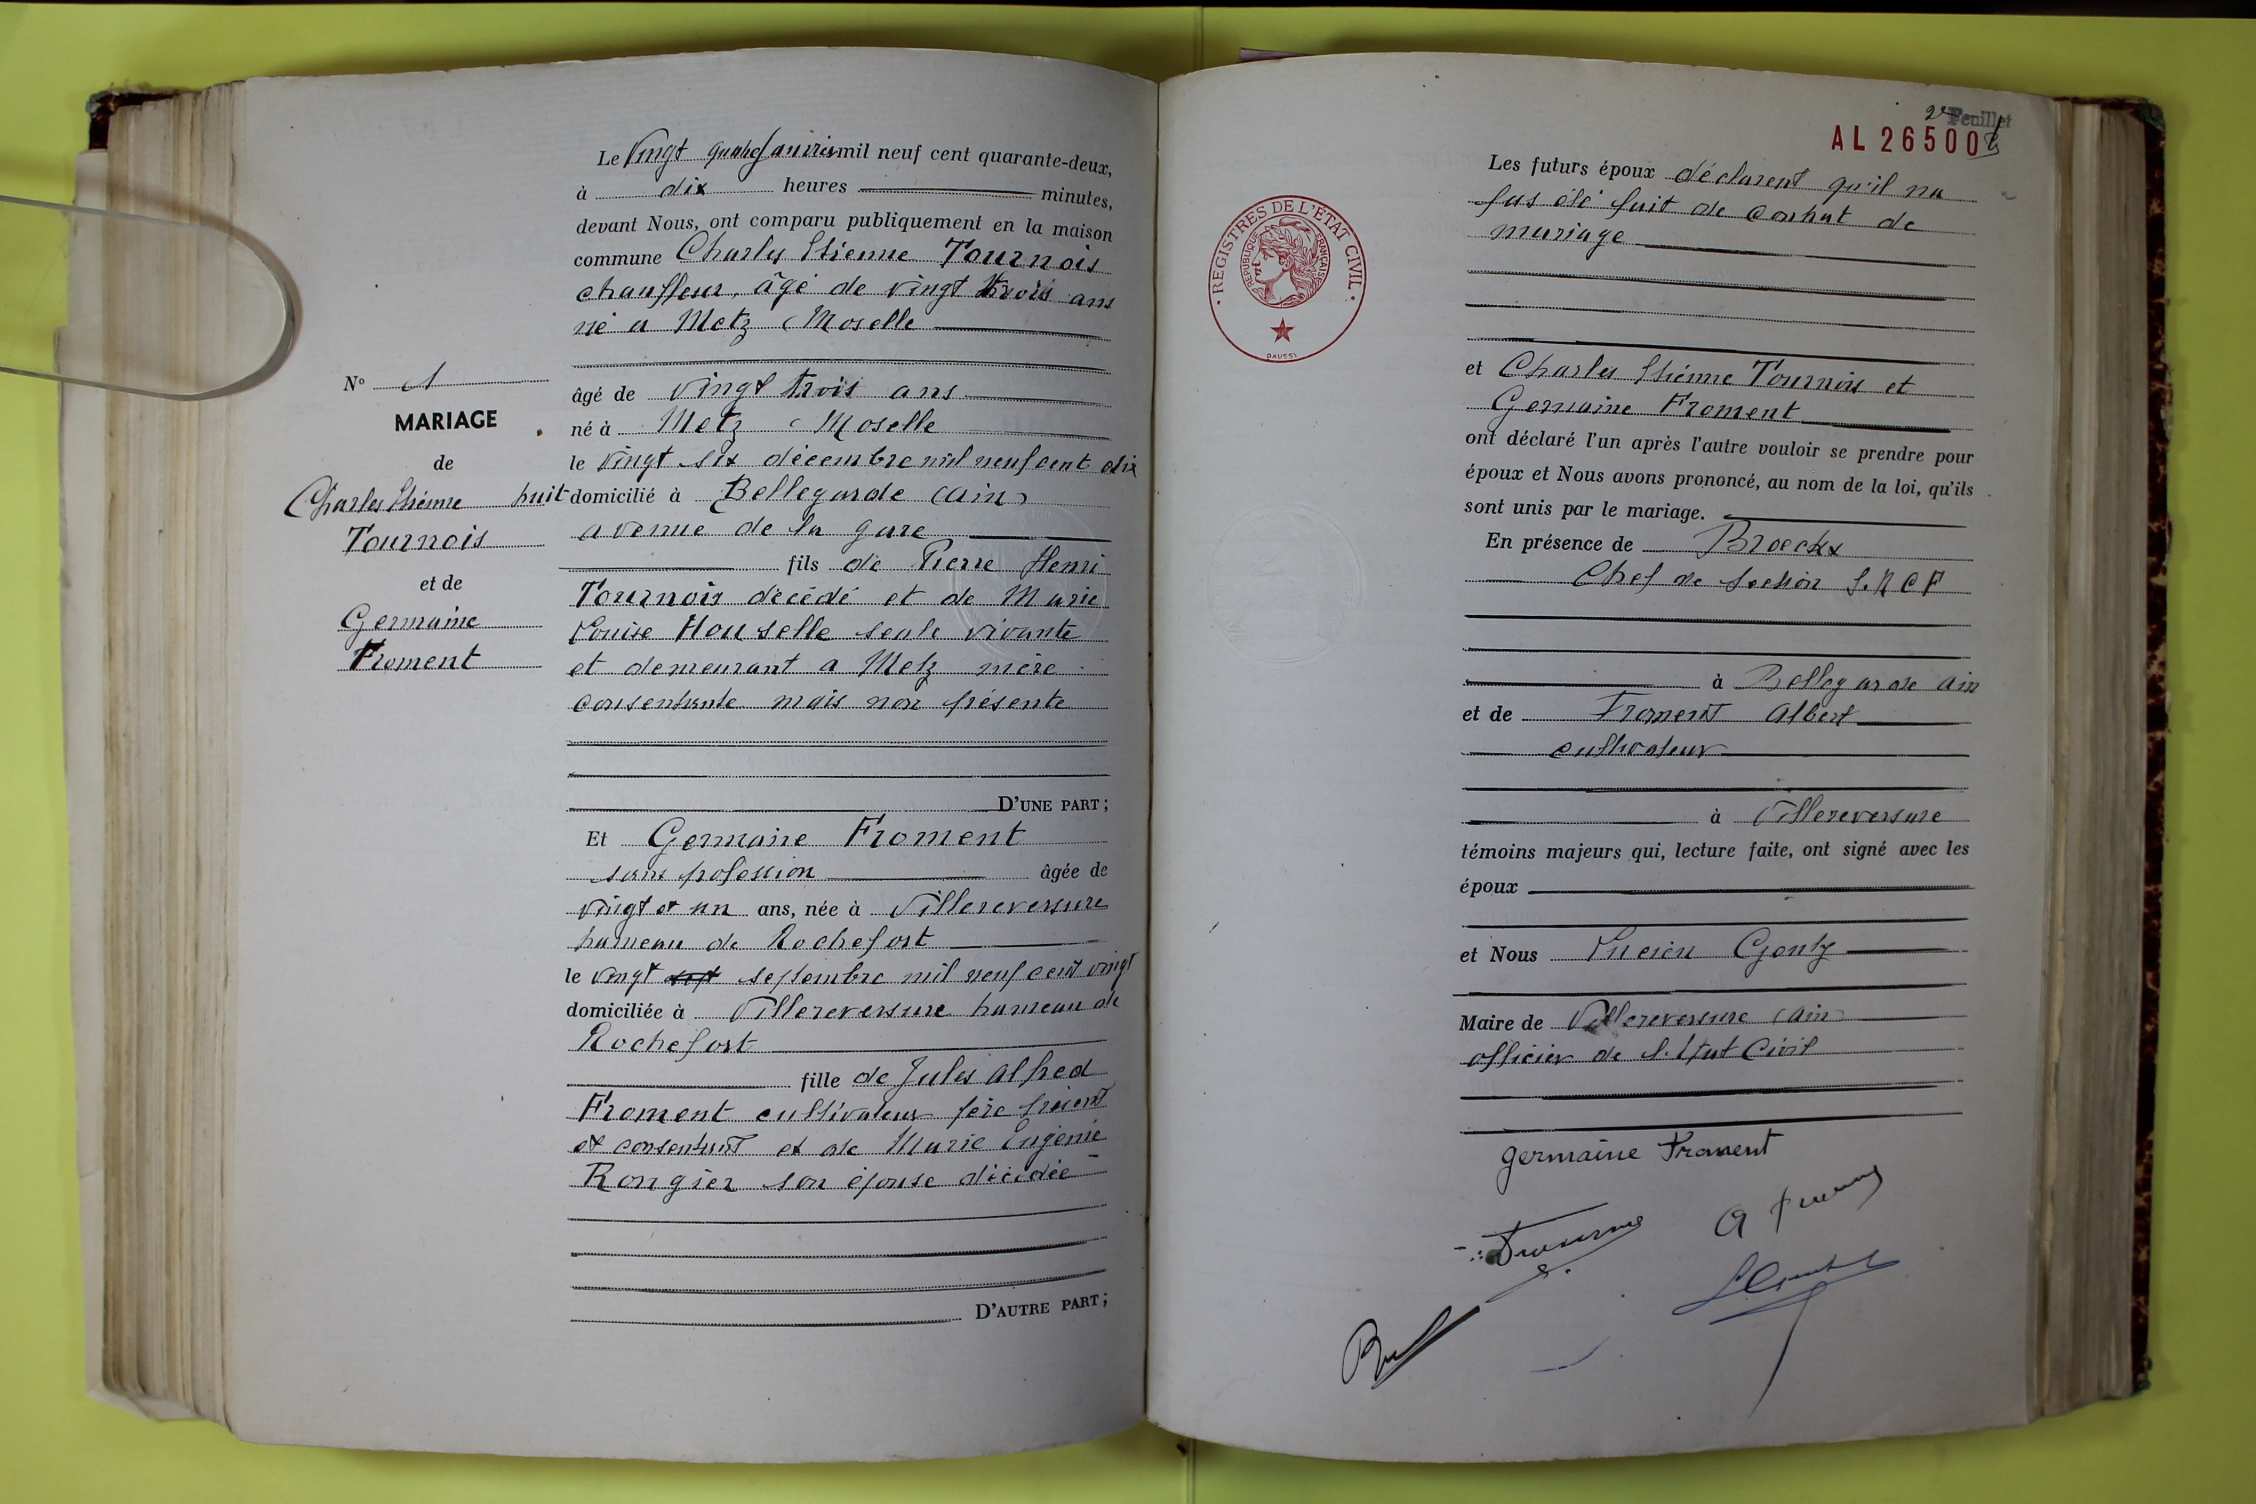 Le Vingt quatre janvier mil neuf cent quarante-deux,
à dix heures minutes,
devant Nous, ont comparu publiquement en la maison
commune Charles Etienne Tournois
chauffeur, âgé de vingt trois ans
né a Metz (Moselle
N° 1
MARIAGE
de
Charles Etienne
Tournois
et de
Germaine
Froment
âgé de vingt trois ans
né à Metz (Moselle
le vingt six décembre mil neuf cent dix
huit domicilié à Bellegarde (Ain)
avenue de la gare
fils de Pierre Henri
Tournois décédé et de Marie
Louise Houselle seule vivante
et demeurant a Metz mère
consentante mais non présente
D'UNE PART ;
Et Germaine Froment
sans profession âgée de
vingt et un ans, née à Villereversure
hameau de Rochefort
le vingt sept septembre mil neuf cent vingt
domiciliée à Villereversure hameau de
Rochefort
fille de Jules Alfred
Froment cultivateur père présent
et consentant et de Marie Eugénie
Rongier son épouse décédée
D'AUTRE PART ;
2e Feuillet
AL 26500
REGISTRES DE L'ETAT CIVIL
REPUBLIQUE FRANÇAISE
DAUSSY
Les futurs époux déclarent qu'il na
pas été fait de contrat de
mariage
et Charles Etienne Tournois et
Germaine Froment
ont déclaré l'un après l'autre vouloir se prendre pour
époux et Nous avons prononcé, au nom de la loi, qu'ils
sont unis par le mariage.
En présence de Broeckx
Chef de section S.N.C.F
à Bellegarde Ain
et de Froment Albert
cultivateur
à Villereversure
témoins majeurs qui, lecture faite, ont signé avec les
époux
et Nous Lucien Gonty
Maire de Villereversure (Ain
officier de l'Etat Civil
germaine Froment